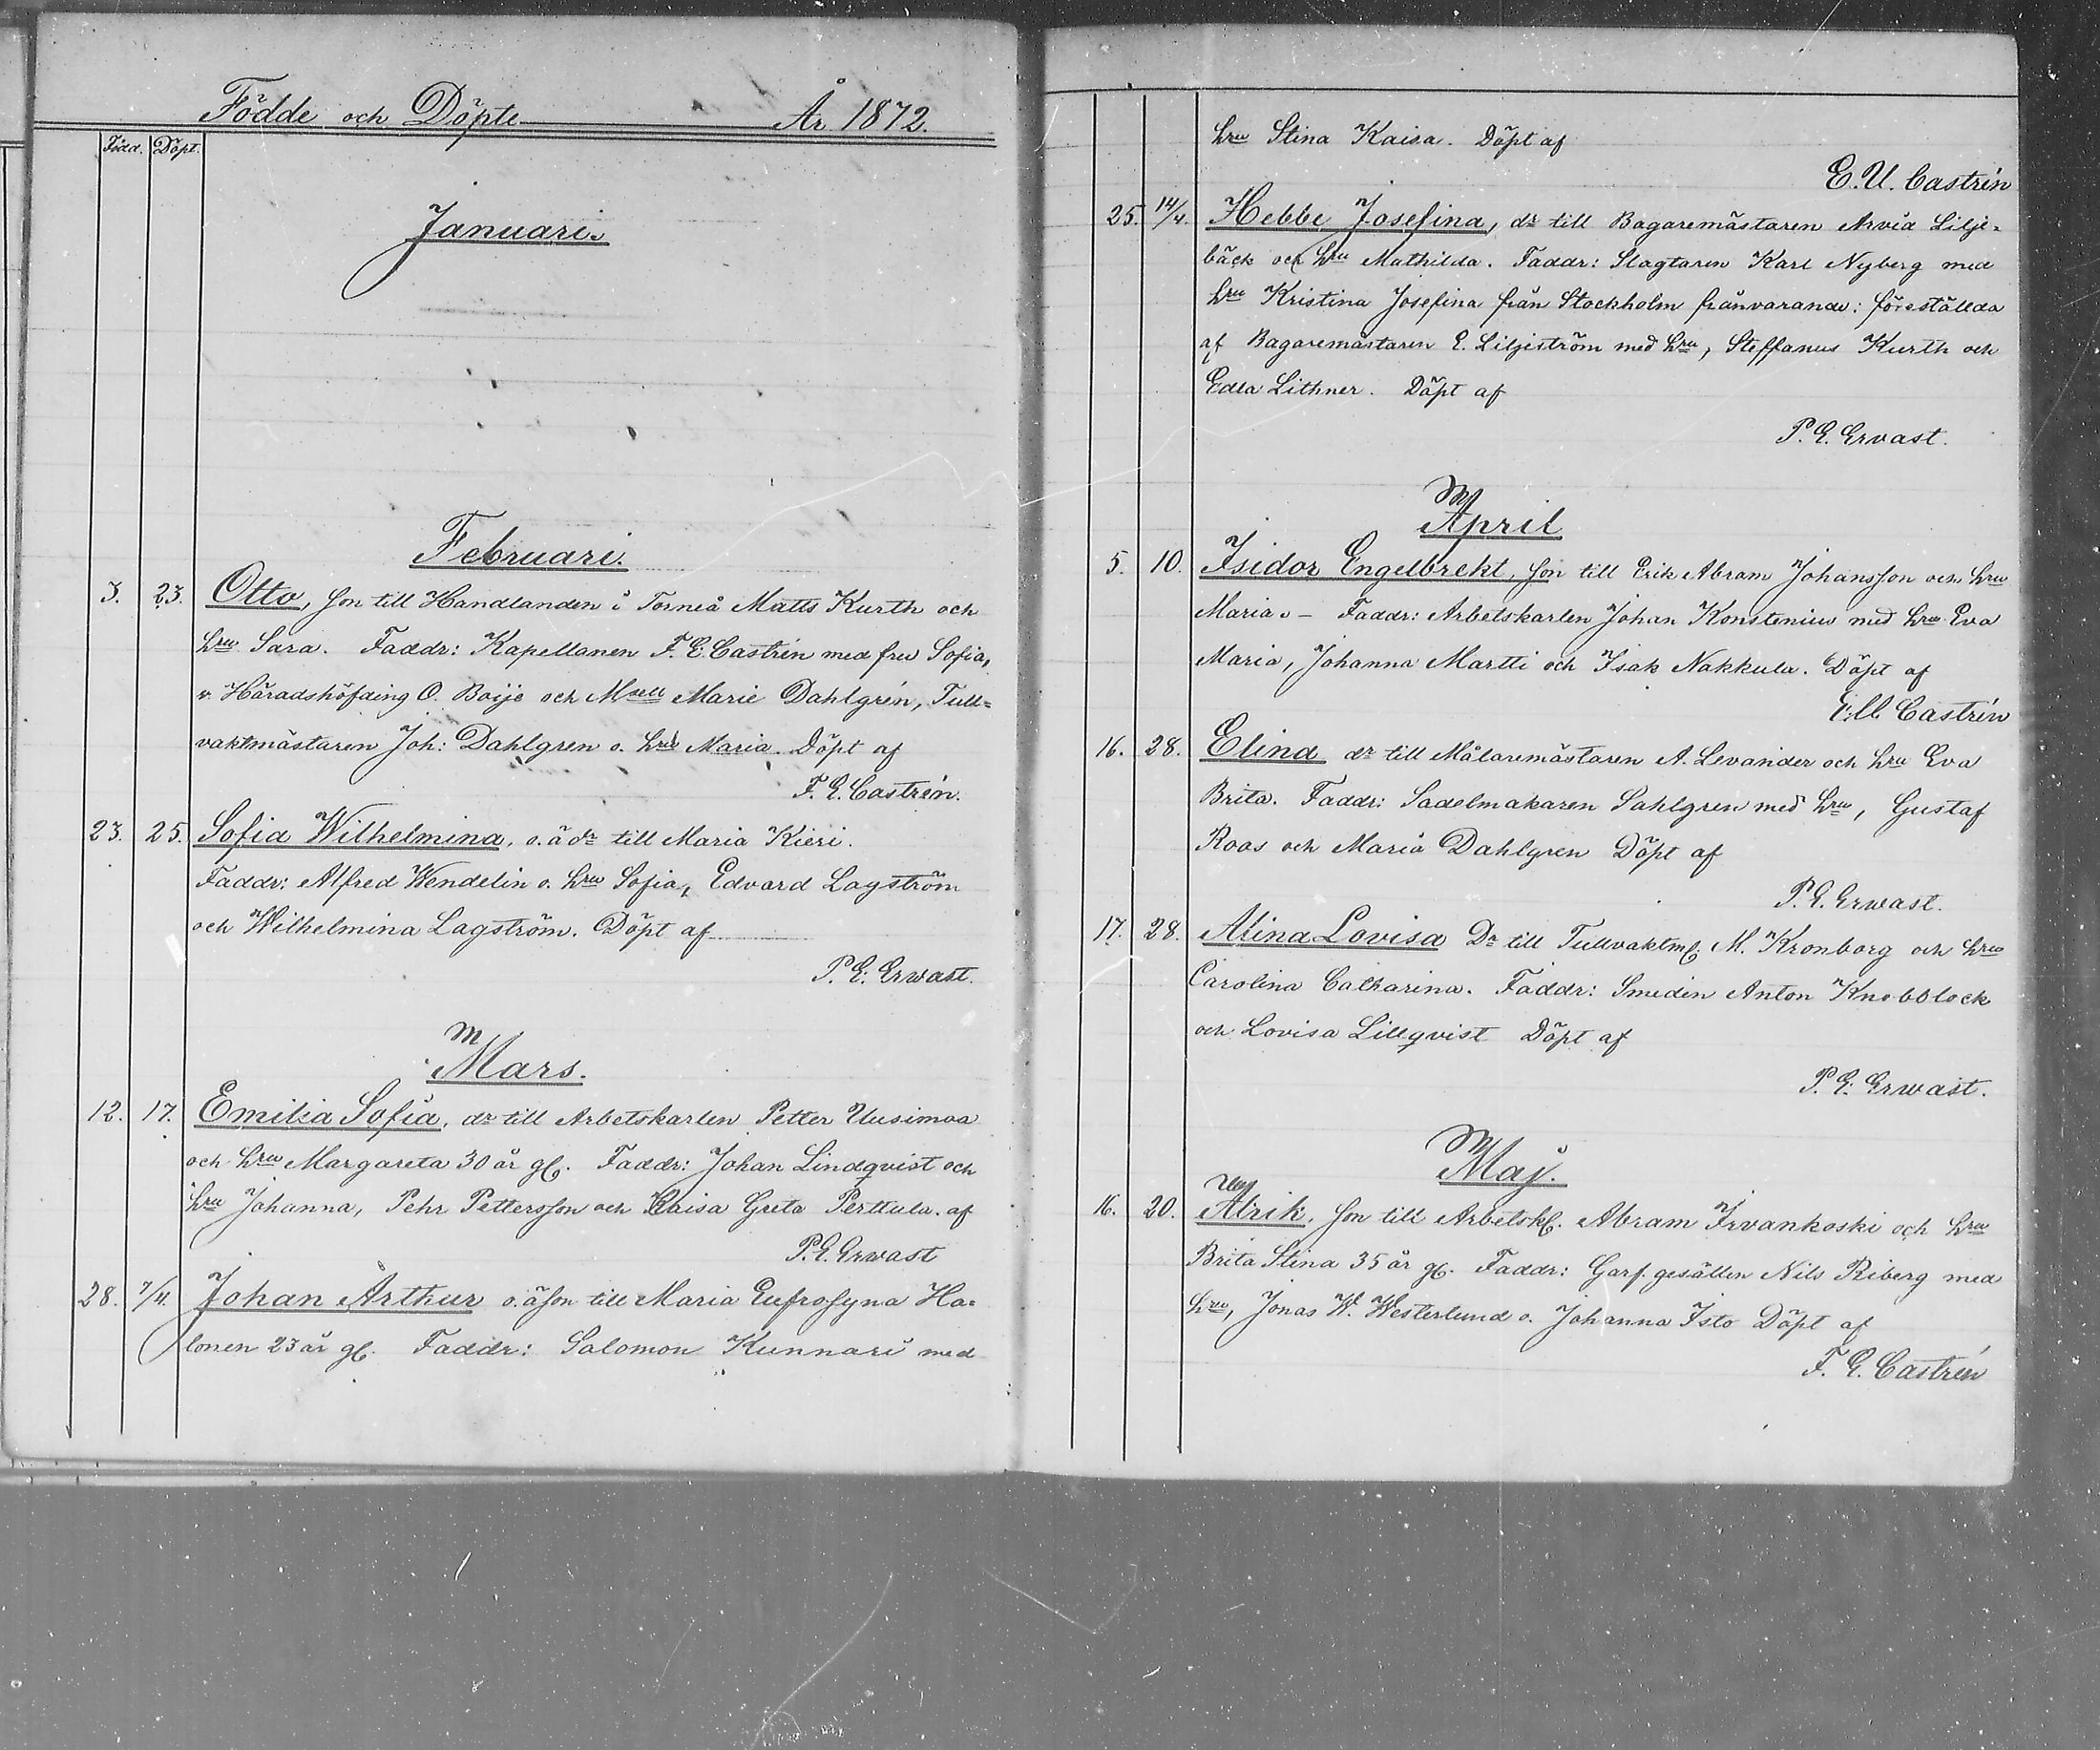 Födde och Döpte År 1872.
Född. Döpt.
Januari.
Februari.
3. 23. Otto, son till Handlanden i Torneå Matts Kurth och
hru Sara. Faddr: Kapellanen F. E. Castrén med fru Sofia,
v. Häradshöfding O. Boije och Msell Marie Dahlgrén, Tull-
vaktmästaren Joh: Dahlgren o. hru Maria. Döpt af
F. E. Castrén.
23. 25. Sofia Wilhelmina, o. ä dr till Maria Kieri.
Faddr: Alfred Wendelin o. hru Sofia, Edvard Lagström
och Wilhelmina Lagström. Döpt af
P. E. Erwast.
Mars.
12. 17. Emilia Sofia, dr till Arbetskarlen Petter Uusimaa
och hru Margareta 30 år gl. Faddr: Johan Lindqvist och
hru Johanna, Pehr Pettersson och Kaisa Greta Perttula. af
P. E. Erwast
28. 7/4. Johan Arthur o. ä son till Maria Eufrosyna Ha-
lonen 23 år gl. Faddr: Salomon Kunnari med
hru Stina Kaisa. Döpt af
E. U. Castrén
25. 14/4. Hebbe Josefina, dr till Bagaremästaren Arvid Lilje-
bäck och hru Mathilda. Faddr: Slagtaren Karl Nyberg med
hru Kristina Josefina från Stockholm frånvarande: föreställda
af Bagaremästaren E. Liljeström med hru, Steffanus Kurth och
Edla Lithner. Döpt af
P. E. Ervast.
April
5. 10. Isidor Engelbrekt, son till Erik Abram Johansson och hru
Maria. – Faddr: Arbetskarlen Johan Konstenius med hru Eva
Maria, Johanna Martti och Isak Nakkula. Döpt af
Castrén
16. 28. Elina dr till Målaremästaren A. Levander och hru Eva
Brita. Faddr: Sadelmakaren Sahlgren med hru, Gustaf
Roos och Maria Dahlgren Döpt af
P. E. Erwast.
17. 28. Alina Lovisa Dr till Tullvaktm. M. Kronborg och hru
Carolina Catharina. Faddr: Smeden Anton Knobblock
och Lovisa Lillqvist Döpt af
P. E. Erwast.
Maj.
16. 20. Alrik, son till Arbetsk. Abram Irvankoski och hru
Brita Stina 35 år gl. Faddr: Garf. gesällen Nils Riberg med
hru, Jonas W. Westerlund o. Johanna Isto Döpt af
F. E. Castrén